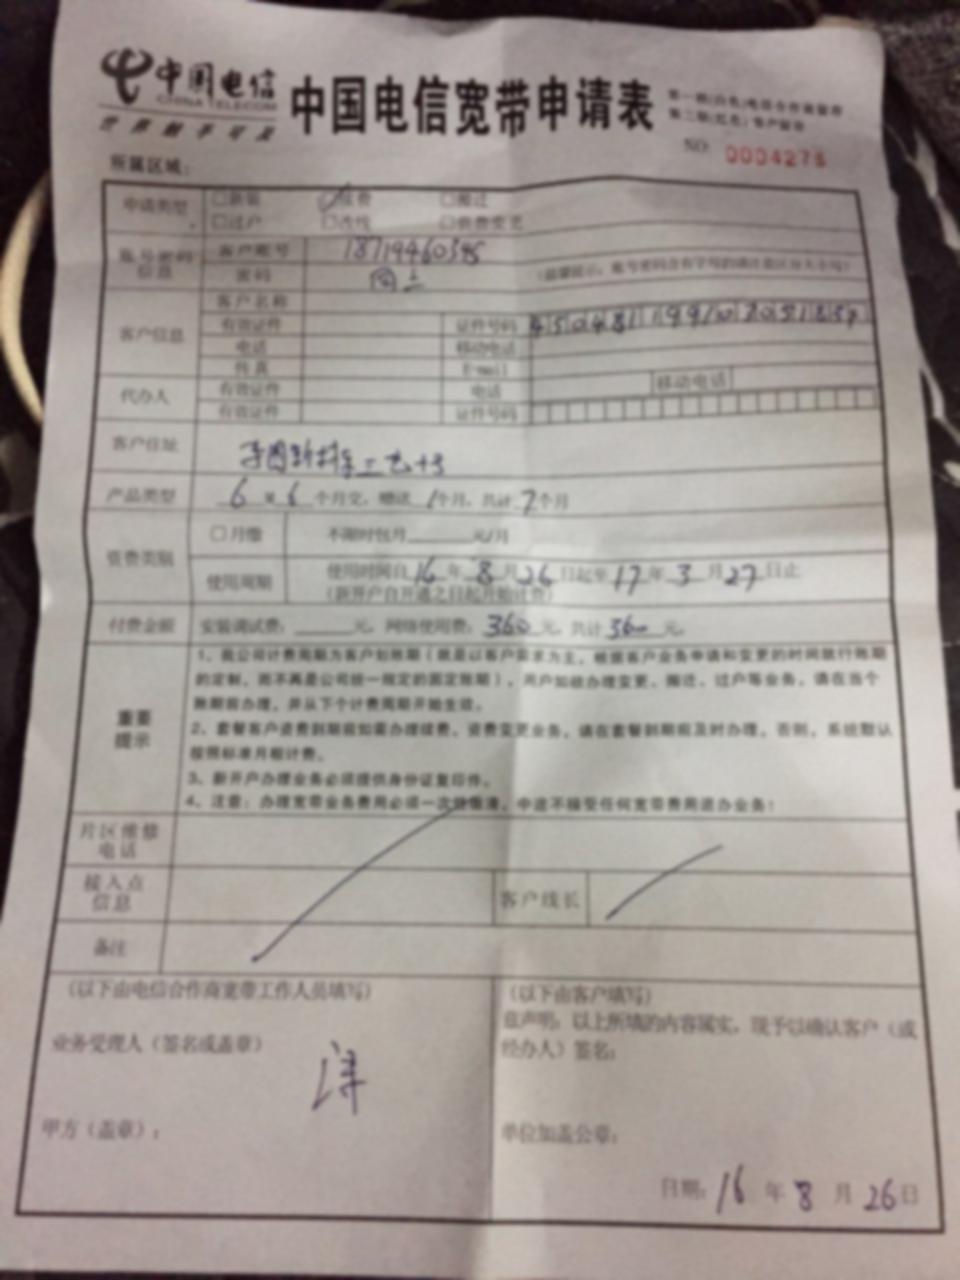 中国电信
CHINA TELECOM
世界触手可及
中国电信宽带申请表
第一联(白色)电信合作商留存
第二联(红色)客户留存
NO 0004276
所属区域：
申请类型 □新装 □续费 □搬迁
□过户 □改线 □资费变更
账号密码信息 客户账号 18719460395
密码 同上 (温馨提示：账号密码含有字母的请注意区分大小写)
客户信息 客户名称
有效证件 证件号码
电话 移动电话
传真 E-mail
代办人 有效证件 电话 移动电话
有效证件 证件号码
客户住址
产品类型 6 个月交，赠送 1个月，共计 7个月
资费类别 □月缴 不限时包月 元/月
使用周期 使用时间自16年8月26日起至17年3月27日止
(新开户自开通之日起开始计费)
付费金额 安装调试费： 元，网络使用费：360元，共计360元。
重要提示
1、我公司计费周期为客户划账期（就是以客户需求为主，根据客户业务申请和变更的时间就行账期
的定制，而不再是公司统一指定的固定账期），用户如欲办理变更、搬迁、过户等业务，请在当个
账期前办理，并从下个计费周期开始生效。
2、套餐客户资费到期前如需办理续费、资费变更业务，请在套餐到期前及时办理，否则，系统默认
按照标准月租计费。
3、新开户办理业务必须提供身份证复印件。
4、注意：办理宽带业务费用必须一次性缴清，中途不接受任何宽带费用退办业务！
片区维修电话
接入点信息 客户线长
备注
(以下由电信合作商宽带工作人员填写) (以下由客户填写)
兹声明：以上所填的内容属实，现予以确认客户（或
业务受理人（签名或盖章） 经办人）签名：
甲方（盖章）： 单位加盖公章：
日期：16年8月26日